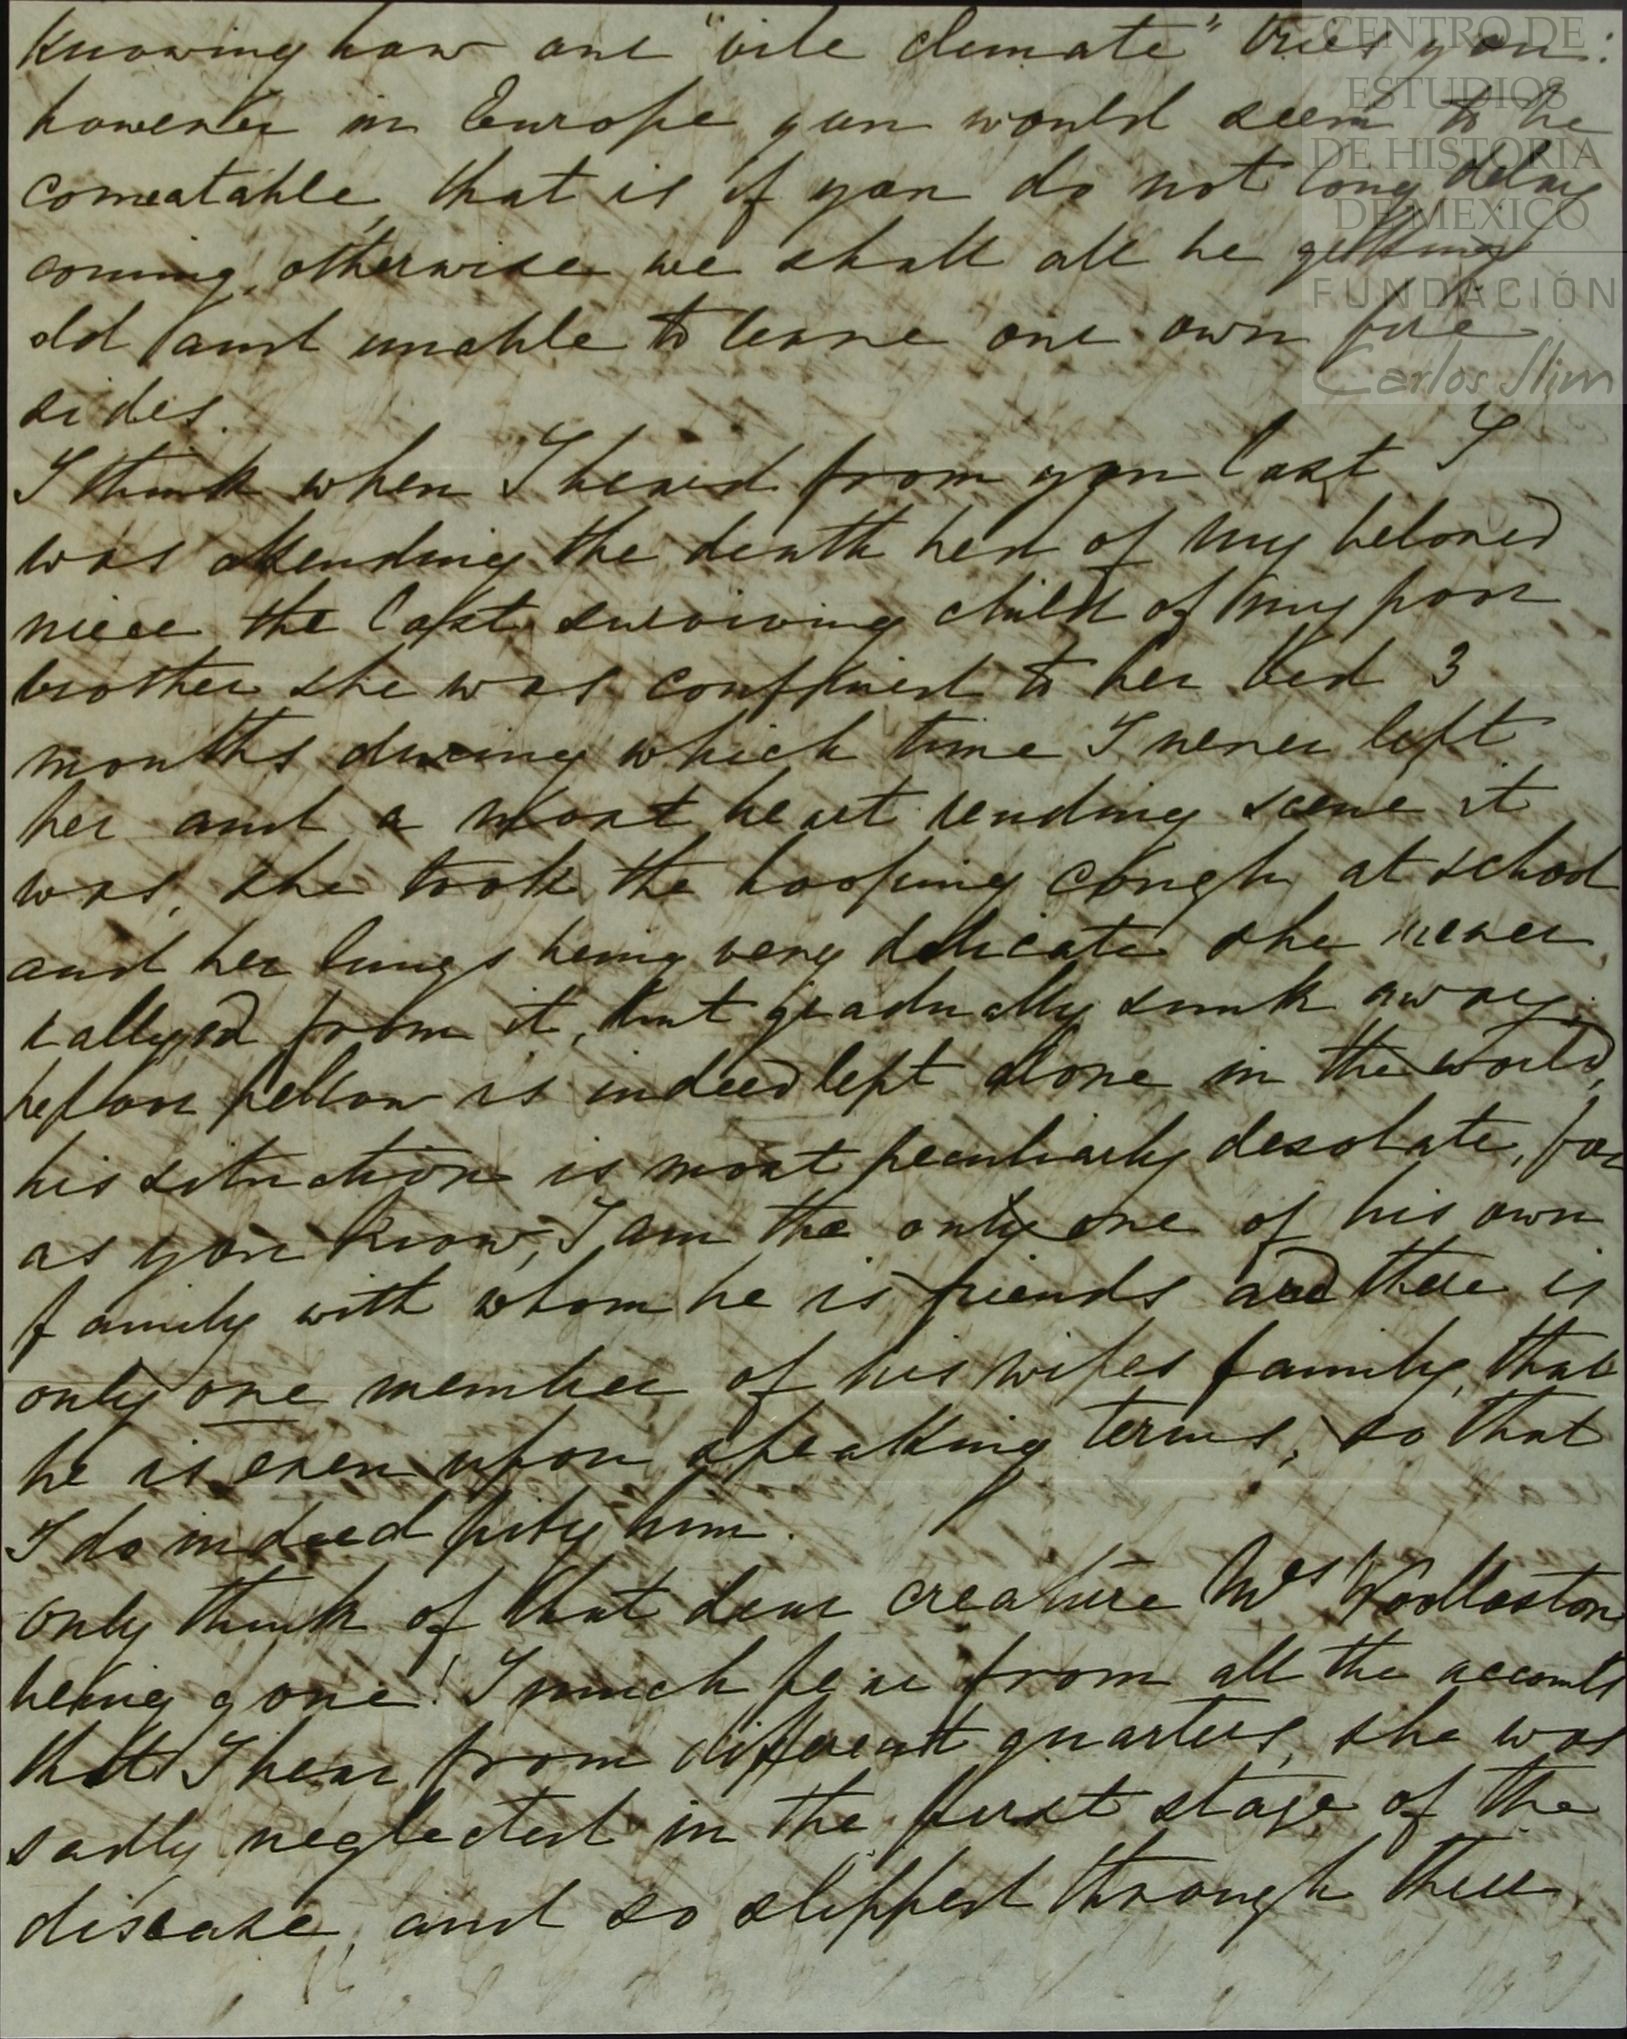 CENTRO DE
ESTUDIOS
DE HISTORIA
DE MEXICO
FUNDACIÓN
Carlos Slim
knowing how our "vile climate" tries you:
however in Europe you would seem to be
comeatable, that is if you do not long delay
coming, otherwise we shall all be getting
old and unable to leave our own fire
sides.
I think when I heard from you last I
was attending the death bed of my beloved
niece the last surviving child of my poor
brother she was confined to her bed 3
months during which time I never left
her and a most heart rending scene it
was, she took the hooping cough at school
and her lungs being very delicate she never
rallyed from it, but gradually sunk away.
he poor fellow is indeed left alone in the world,
his situation is most peculiarly desolate, for
as you know, I am the only one of his own
family with whom he is friends and there is
only one member of his wifes family, that
he is even upon speaking terms, so that
I do indeed pity him.
only think of that dear creature Mrs Woollaston
being gone! I much fear from all the accounts
that I hear from different quarters, she was
sadly neglected in the first stage of the
disease, and so slipped through their